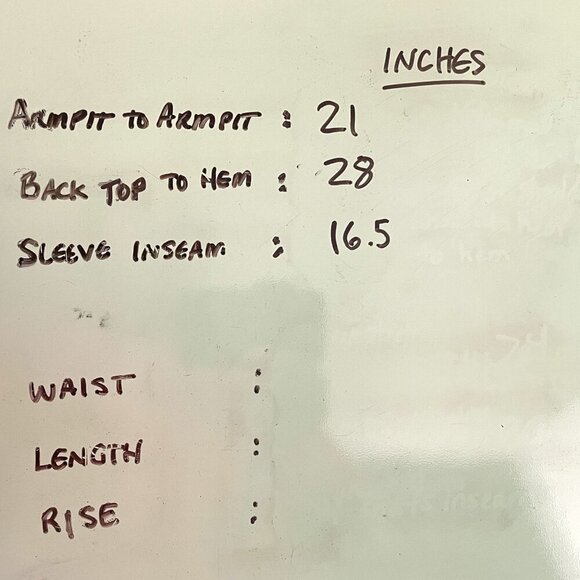 INCHES
ARMPIT TO ARMPIT : 21
BACK TOP TO HEM : 28
SLEEVE INSEAM : 16.5
WAIST :
LENGTH :
RISE :